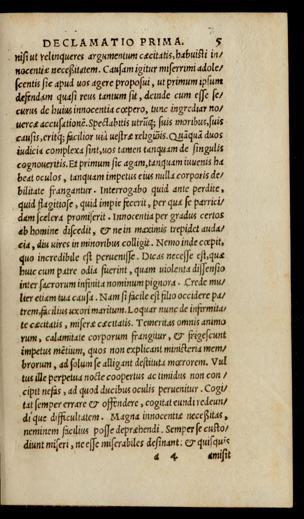 DECLAMATIO PRIMA. 5
nisi ut relinqueres argumentum cæcitatis, habuisti in/
nocentiæ necessitatem. Causam igitur miserrimi adole/
scentis sic apud uos agere proposui, ut primum ipsum
defendam quasi reus tantum sit, deinde cum esse se/
curus de huius innocentia cœpero, tunc ingrediar no/
uercæ accusationē. Spectabitis utrūq; suis moribus, suis
causis, eritq; facilior uiā uestræ religiōis. Quāquā duos
iudicia complexa sint, uos tamen tanquam de singulis
cognoueritis. Et primum sic agam, tanquam iuuenis ha
beat oculos, tanquam impetus eius nulla corporis de/
bilitate frangantur. Interrogabo quid ante perdite,
quid flagitiose, quid impie fecerit, per quæ se parrici/
dam scelera promiserit. Innocentia per gradus certos
ab homine discedit, & ne in maximis trepidet auda/
cia, diu uires in minoribus colligit. Nemo inde cœpit,
quo incredibile est peruenisse. Dicas necesse est, quæ
huic cum patre odia fuerint, quam uiolenta dissensio
inter sacrorum infinita nominum pignora. Crede mu/
lier etiam tua causa. Nam si facile est filio occidere pa/
trem, facilius uxori maritum. Loquar nunc de infirmita/
te cæcitatis, miseræ cæcitatis. Temeritas omnis animo
rum, calamitate corporum frangitur, & frigescunt
impetus mētium, quos non explicant ministeria mem/
brorum, ad solum se alligant destituta mœrorem. Vul
tus ille perpetua nocte coopertus ac timidus non con/
cipit nefas, ad quod ducibus oculis peruenitur. Cogi/
tat semper errare & offendere, cogitat eundi redeun/
di que difficultatem. Magna innocentiæ necessitas,
neminem facilius posse depræhendi. Semper se custo/
diunt miseri, ne esse miserabiles desinant: & quisquis
a 4 amisit